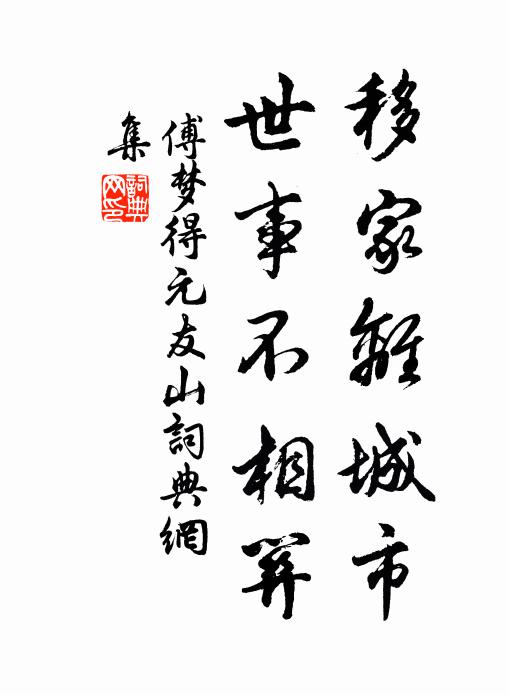 移家離城市
世事不相關
傅梦得元友山詞典網
集
詞典
网印